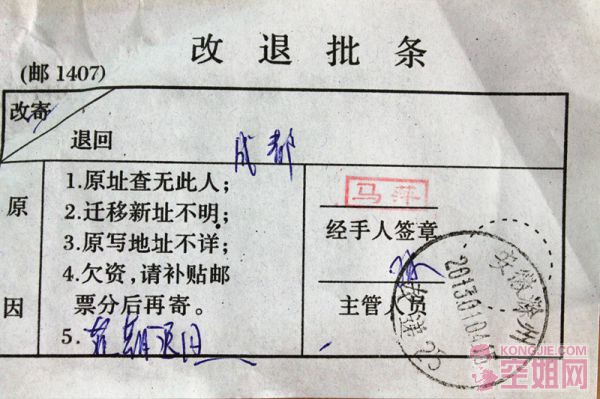 改退批条
(邮1407)
改寄
退回 成都
原因
1.原址查无此人;
2.迁移新址不明;
3.原写地址不详;
4.欠资,请补贴邮
票分后再寄。
5.
马萍
经手人签章
主管人员
安徽滁州
2013.01.04
投递25
KONGJIE.COM
空姐网